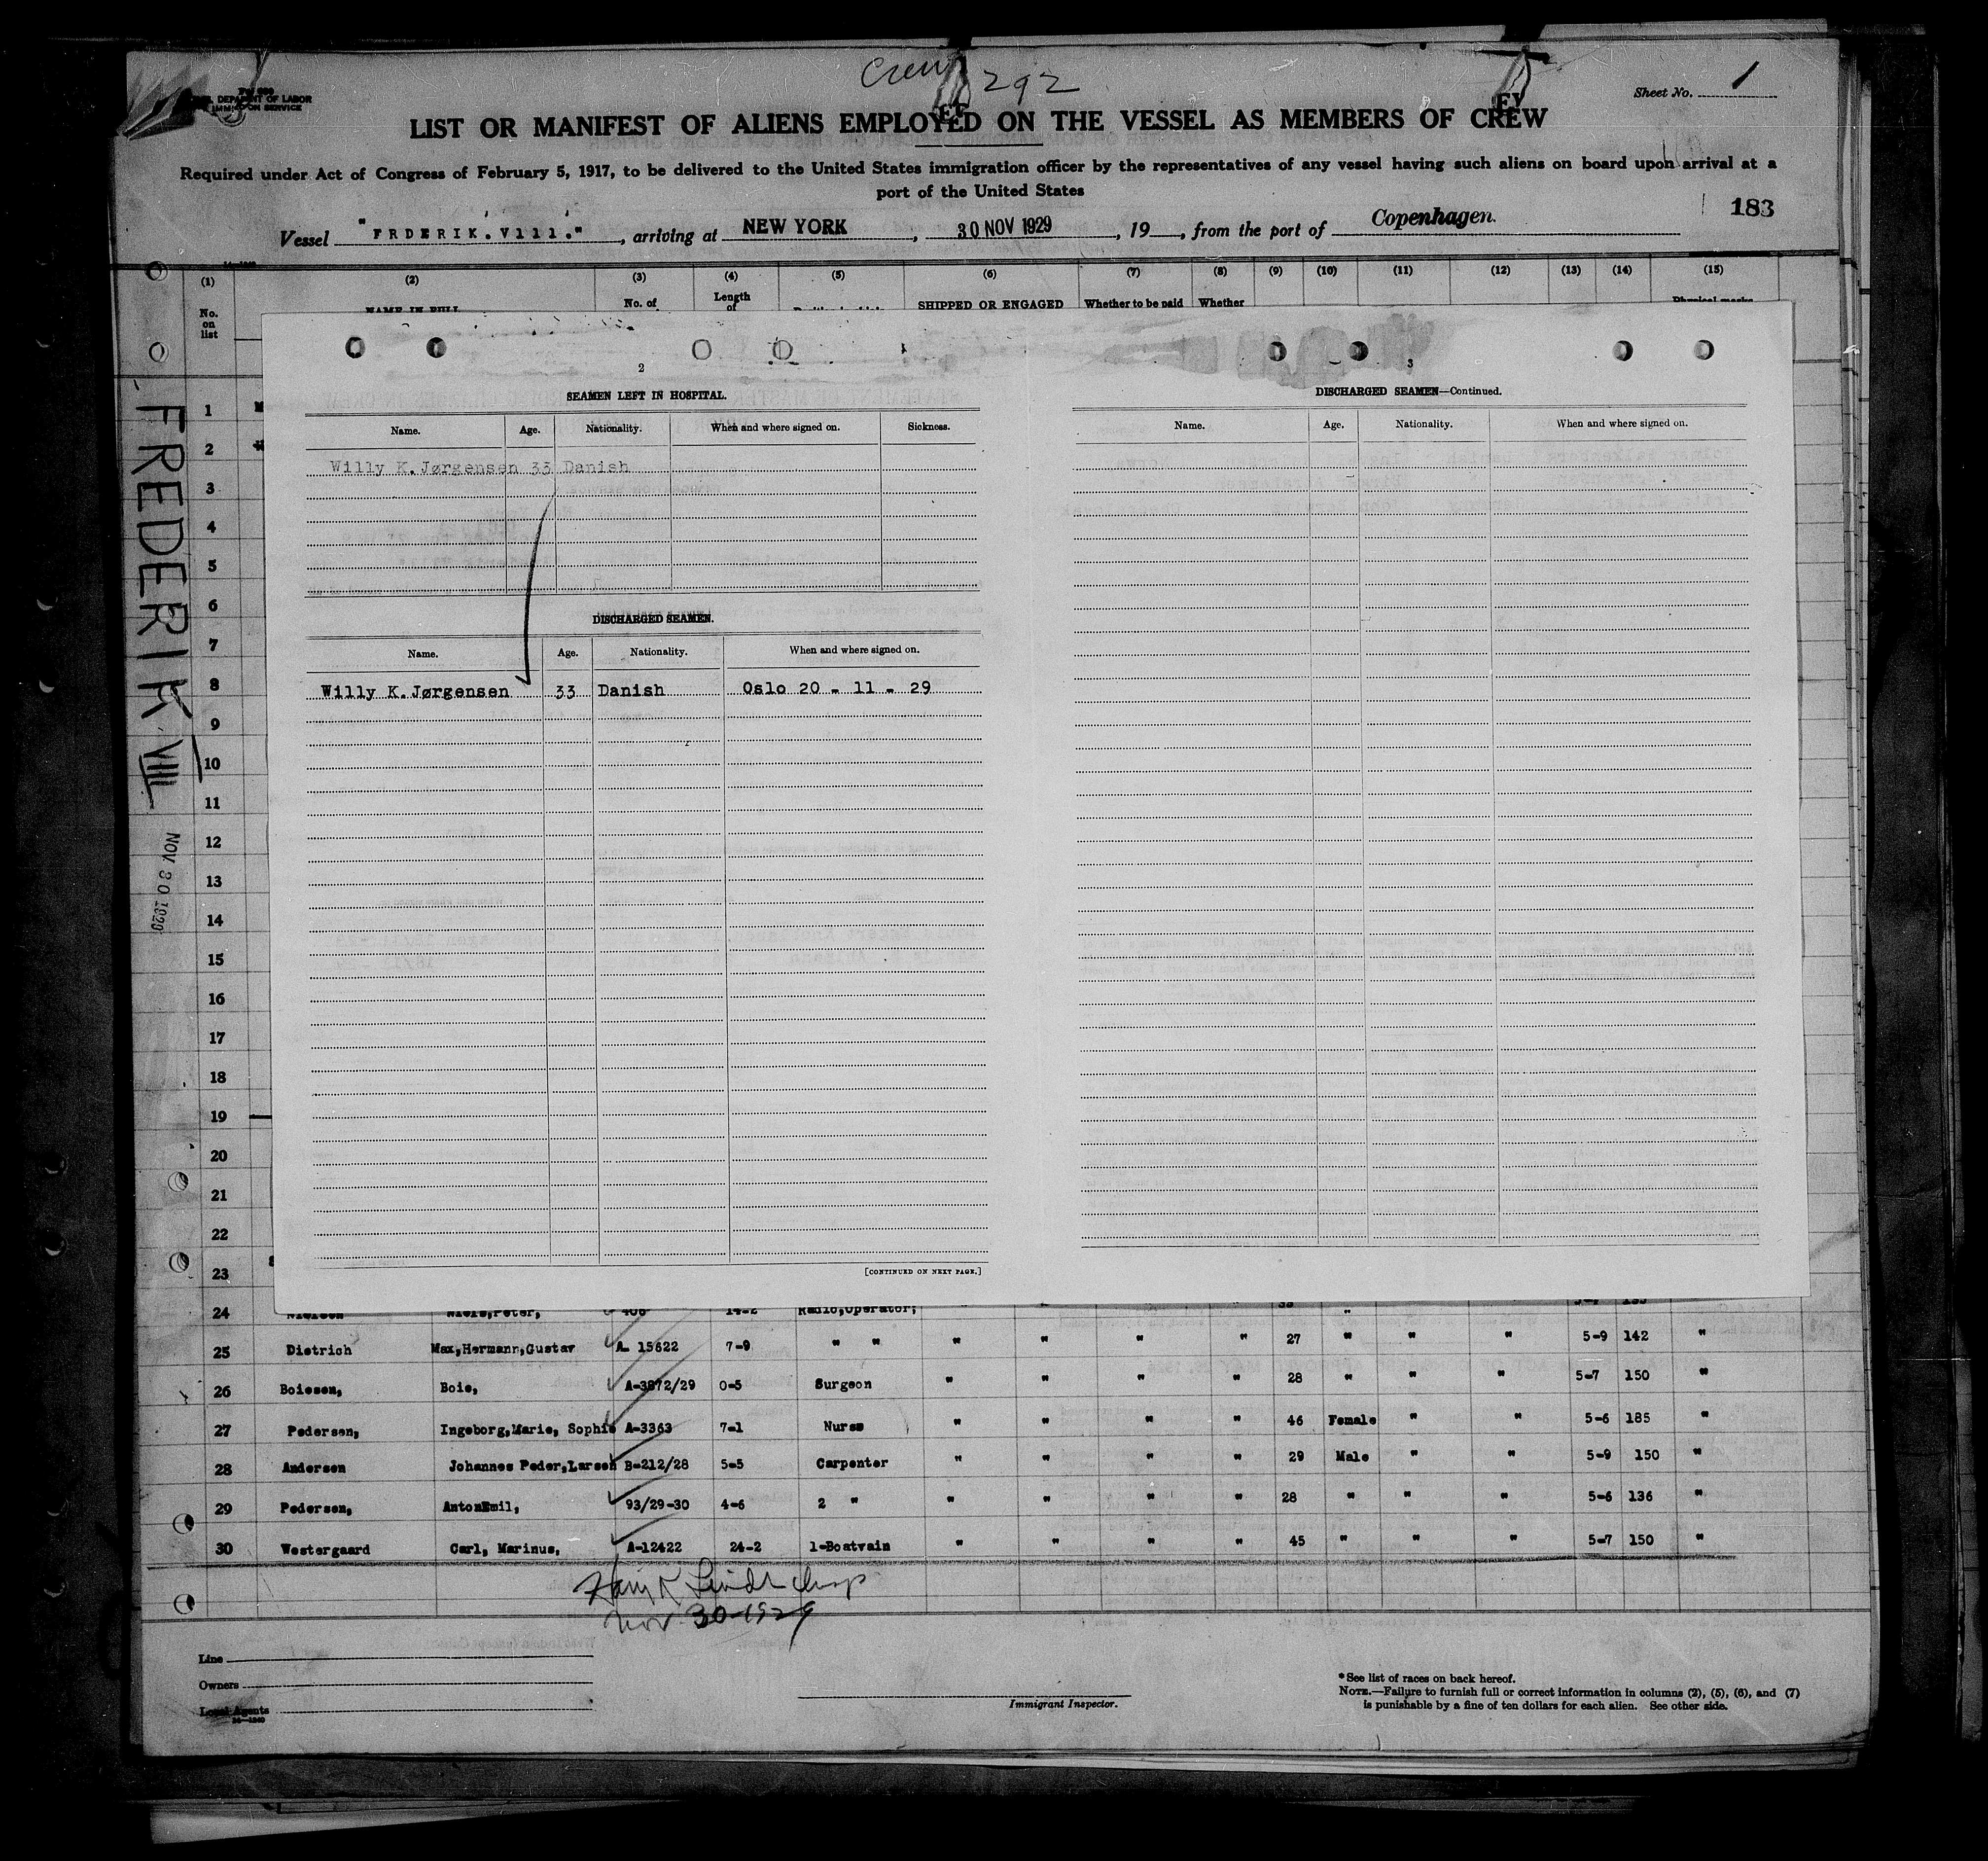 Crew 292
DEPARTMENT OF LABOR
IMMIGRATION SERVICE
Sheet No. 1
LIST OR MANIFEST OF ALIENS EMPLOYED ON THE VESSEL AS MEMBERS OF CREW
Required under Act of Congress of February 5, 1917, to be delivered to the United States immigration officer by the representatives of any vessel having such aliens on board upon arrival at a
port of the United States
183
Vessel "FRDERIK.Vlll.", arriving at NEW YORK, 30 NOV 1929, 19, from the port of Copenhagen.
(1) (2) (3) (4) (5) (6) (7) (8) (9) (10) (11) (12) (13) (14) (15)
No. on list NAME IN FULL No. of Length of SHIPPED OR ENGAGED Whether to be paid Whether Physical marks
FREDERIK VIII
NOV 30 1929
2
SEAMEN LEFT IN HOSPITAL.
Name. Age. Nationality. When and where signed on. Sickness.
Willy K.Jørgensen 33 Danish
DISCHARGED SEAMEN.
Name. Age. Nationality. When and where signed on.
Willy K.Jørgensen 33 Danish Oslo 20 - 11 - 29
[CONTINUED ON NEXT PAGE.]
3
DISCHARGED SEAMEN—Continued.
Name. Age. Nationality. When and where signed on.
1
2
3
4
5
6
7
8
9
10
11
12
13
14
15
16
17
18
19
20
21
22
23
24 Nielsen Niels,Peter, 406 14-2 Radio,Operator, " 38 "
25 Dietrich Max,Hermann,Gustav A- 15622 7-9 " " " " " " 27 " " " 5-9 142 "
26 Boiesen, Boie, A-3872/29 0-5 Surgeon " " " " 28 " " " 5-7 150 "
27 Pedersen, Ingeborg,Marie, Sophie A-3363 7-1 Nurse " " " " 46 Female " " 5-6 185 "
28 Andersen Johannes Peder,Larsen B-212/28 5-5 Carpenter " " " " 29 Male " " 5-9 150 "
29 Pedersen, AntonEmil, 93/29-30 4-6 2 " " " " " 28 " " " 5-6 136 "
30 Westergaard Carl, Marinus, A-12422 24-2 1-Boatvain " " " " 45 " " " 5-7 150 "
Nov 30-1929
Line
Owners
Local Agents
Immigrant Inspector.
*See list of races on back hereof.
NOTE.—Failure to furnish full or correct information in columns (2), (5), (6), and (7)
is punishable by a fine of ten dollars for each alien. See other side.